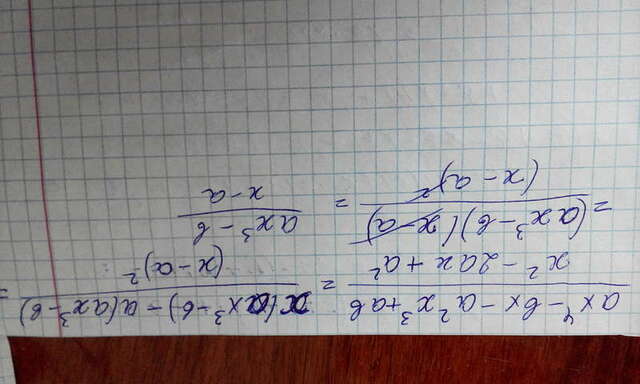 (ax⁴ - bx - a²x³ + ab)/(x² - 2ax + a²) = (x(ax³ - b) - a(ax³ - b))/(x - a)² =
= ((ax³ - b)(x - a))/(x - a)² = (ax³ - b)/(x - a)